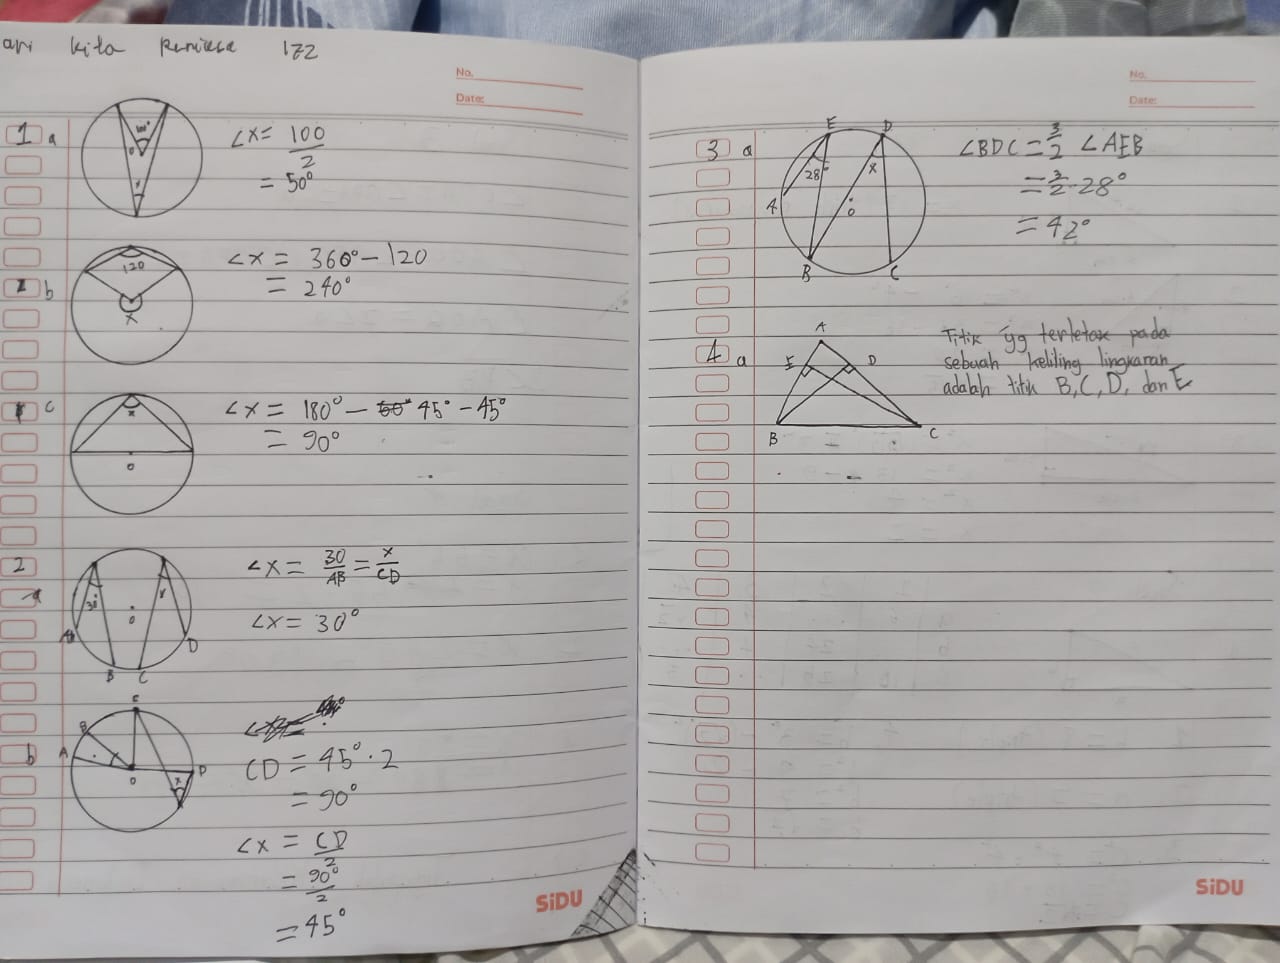 ari kita Periksa 172
No.
Date:
1 a
100°
O
x
∠x = 100/2
= 50°
b
120
x
∠x = 360° - 120
= 240°
c
x
O
∠x = 180° - 45° - 45°
= 90°
2
a
30°
x
O
A B C D
∠x = 30/AB = x/CD
∠x = 30°
b
C
B
A
O
D
x
CD = 45° · 2
= 90°
∠x = CD/2
= 90°/2
= 45°
SiDU
No.
Date:
3 a
E D
28°
x
A
O
B C
∠BDC = 3/2 ∠AEB
= 3/2 · 28°
= 42°
4 a
A
E D
B C
Titik yg terletak pada
sebuah keliling lingkaran
adalah titik B, C, D, dan E
SiDU